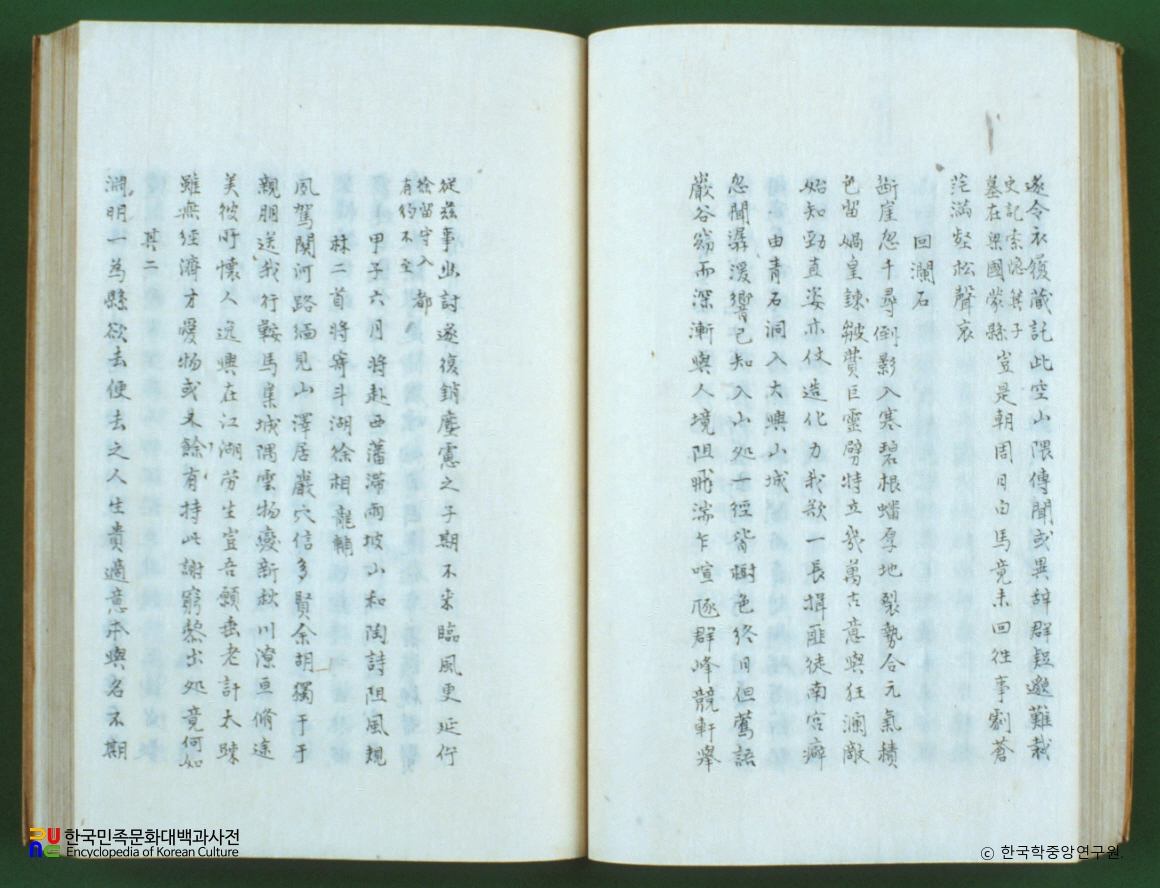 遂令衣履藏託此空山隈傳聞或異辞群疑邈難裁
史記索隐箕子
墓在梁國蒙縣
豈是朝周日白馬竟未回往事劃蒼
茫滿壑松聲哀
回瀾石
斷崖忽千尋倒影入寒碧根蟠厚地裂勢合元氣積
色留媧皇鍊皴費巨靈劈特立幾萬古意與狂瀾敵
始知勁直姿亦仗造化力我欲一長揖匪徒南宮癖
由青石洞入大興山城
忽聞潺湲響已知入山処一徑皆樹色終日但鶯語
巖谷窈而深漸與人境阻飛湍乍喧豗群峰競軒舉
從茲事出討遂復銷塵慮之子期不来臨風更延佇
徐留守入都
有約不至
甲子六月将赴西藩滞雨坡山和陶詩阻風規
林二首將寄斗湖徐相龍輔
夙駕関河路緬見山澤居巖穴信多賢余胡獨于于
親朋送我行鞍馬集城隅雲物變新秋川潦亘脩途
美彼所懷人逸興在江湖劳生豈吾願垂老計太疎
雖無經濟才愛物或未餘有持此謝窮黎出処竟何如
其二
淵明一為縣欲去便去之人生貴適意本與名不期
한국민족문화대백과사전
Encyclopedia of Korean Culture
© 한국학중앙연구원.